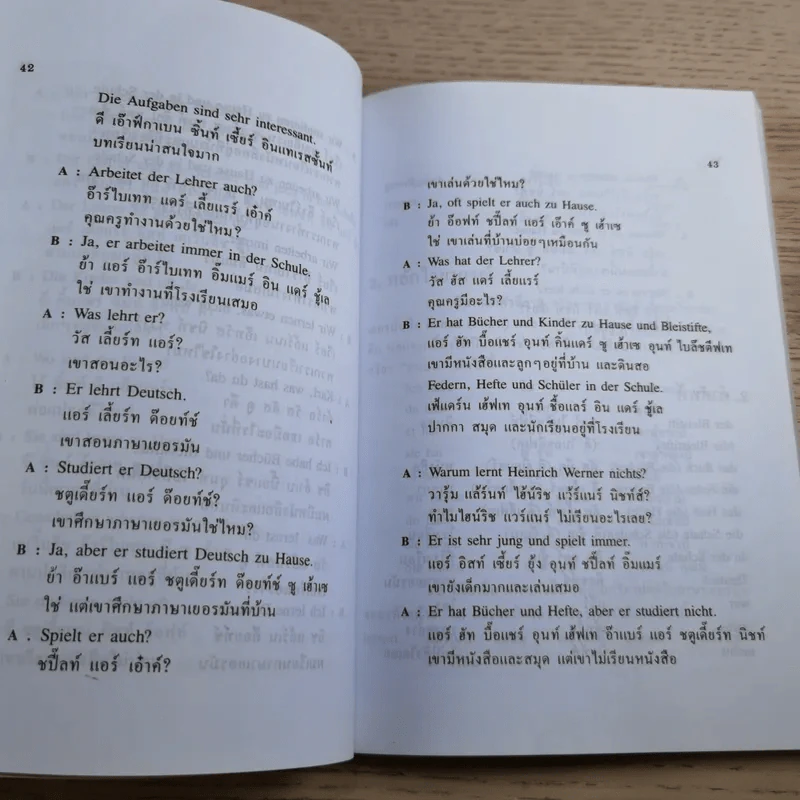 42
Die Aufgaben sind sehr interessant.
ดี เอ๊าฟ์กาเบน ซิ้นท์ เซี้ยร์ อินแทเรสซั้นท์
บทเรียนน่าสนใจมาก
A : Arbeitet der Lehrer auch?
อ๊าร์ไบเทท แดร์ เลี้ยแรร์ เอ๋าค์
คุณครูทำงานด้วยใช่ไหม?
B : Ja, er arbeitet immer in der Schule.
ย้า แอร์ อ๊าร์ไบเทท อิ๊มแมร์ อิน แดร์ ชู้เล
ใช่ เขาทำงานที่โรงเรียนเสมอ
A : Was lehrt er?
วัส เลี้ยร์ท แอร์?
เขาสอนอะไร?
B : Er lehrt Deutsch.
แอร์ เลี้ยร์ท ด๊อยท์ช์
เขาสอนภาษาเยอรมัน
A : Studiert er Deutsch?
ชตูเดี๊ยร์ท แอร์ ด๊อยท์ช์?
เขาศึกษาภาษาเยอรมันใช่ไหม?
B : Ja, aber er studiert Deutsch zu Hause.
ย้า อ๊าแบร์ แอร์ ชตูเดี๊ยร์ท ด๊อยท์ช์ ซู เฮ้าเซ
ใช่ แต่เขาศึกษาภาษาเยอรมันที่บ้าน
A . Spielt er auch?
ชปี๊ลท์ แอร์ เอ๋าค์?
43
เขาเล่นด้วยใช่ไหม?
B : Ja, oft spielt er auch zu Hause.
ย้า อ๊อฟท์ ชปี๊ลท์ แอร์ เอ๊าค์ ซู เฮ้าเซ
ใช่ เขาเล่นที่บ้านบ่อยๆเหมือนกัน
A : Was hat der Lehrer?
วัส ฮัส แดร์ เลี้ยแรร์
คุณครูมีอะไร?
B : Er hat Bücher und Kinder zu Hause und Bleistifte,
แอร์ ฮัท บื๊อแชร์ อุนท์ คิ่นแดร์ ซู เฮ้าเซ อุนท์ ไบล๊ชตีฟเท
เขามีหนังสือและลูกๆอยู่ที่บ้าน และดินสอ
Federn, Hefte und Schüler in der Schule.
เฟ็แดร์น เฮ้ฟเท อุนท์ ชื้อแลร์ อิน แดร์ ชู้เล
ปากกา สมุด และนักเรียนอยู่ที่โรงเรียน
A : Warum lernt Heinrich Werner nichts?
วารุ้ม แล้ร์นท์ ไฮ้น์ริช แว้ร์แนร์ นิชท์ส์?
ทำไมไฮน์ริช แวร์แนร์ ไม่เรียนอะไรเลย?
B : Er ist sehr jung und spielt immer.
แอร์ อิสท์ เซี้ยร์ ยุ้ง อุนท์ ชปี๊ลท์ อิ๊มแมร์
เขายังเด็กมากและเล่นเสมอ
A : Er hat Bücher und Hefte, aber er studiert nicht.
แอร์ ฮัท บื๊อแชร์ อุนท์ เฮ้ฟเท อ๊าแบร์ แอร์ ชตูเดี๊ยร์ท นิชท์
เขามีหนังสือและสมุด แต่เขาไม่เรียนหนังสือ